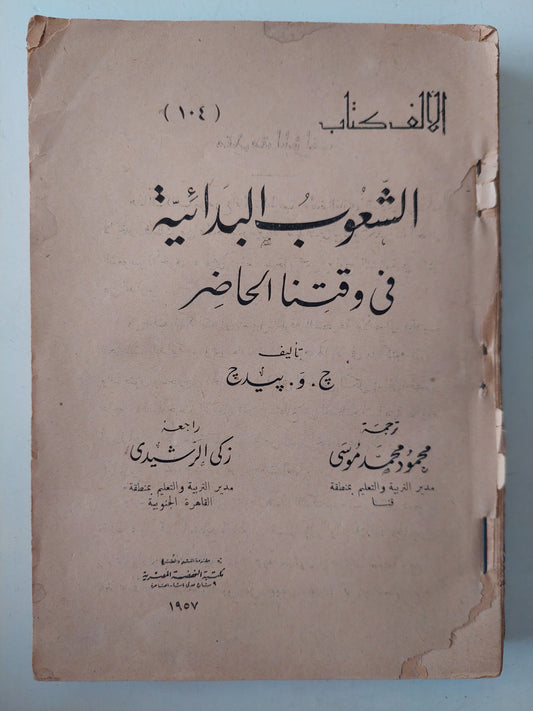 الألف كتاب
(١٠٤)
الشعوب البدائية
في وقتنا الحاضر
تأليف
چ. و. پيدچ
ترجمة
محمود محمد موسى
مدير التربية والتعليم بمنطقة
قنا
راجعة
زكى الرشيدى
مدير التربية والتعليم بمنطقة
القاهرة الجنوبية
مكتبة النهضة المصرية
١٩٥٧